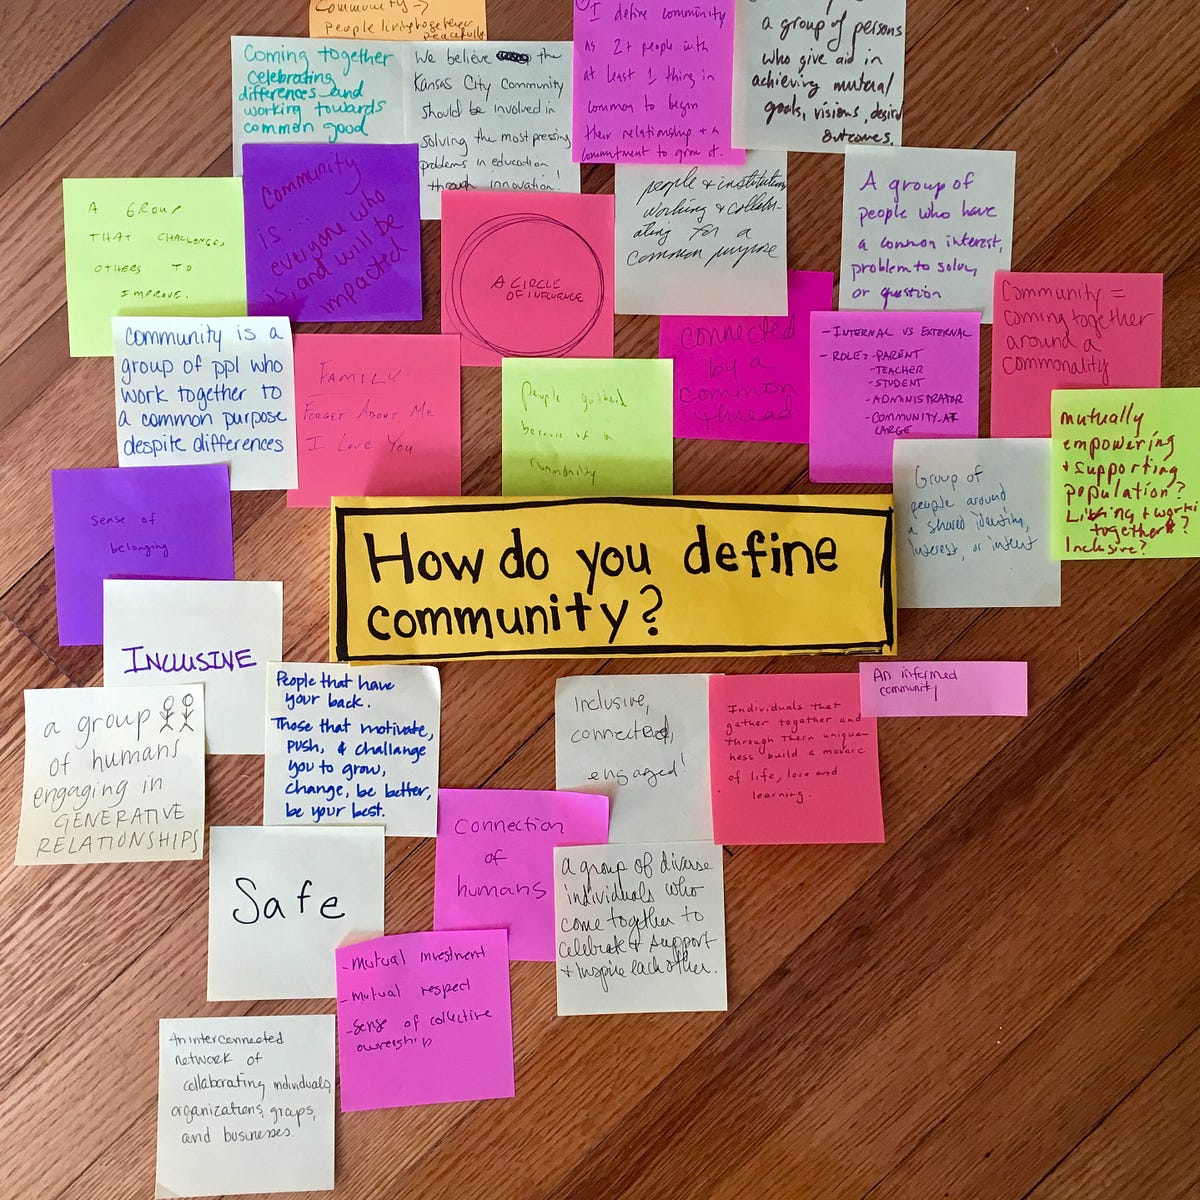 Community →
People living together
peacefully
Coming together
celebrating
differences and
working towards
common good
We believe the
Kansas City Community
should be involved in
solving the most pressing
problems in education
through innovation!
I define community
as 2+ people with
at least 1 thing in
common to begin
their relationship + a
commitment to grow it.
a group of persons
who give aid in
achieving mutual
goals, visions, desired
outcomes.
A GROUP
THAT CHALLENGES
OTHERS TO
IMPROVE.
Community
is...
everyone who
is, and will be
impacted
A CIRCLE
OF INFLUENCE
people + institutions
working + collabor-
ating for a
common purpose
A group of
people who have
a common interest,
problem to solve,
or question
Community =
coming together
around a
commonality
community is a
group of ppl who
work together to
a common purpose
despite differences
FAMILY
FORGET ABOUT ME
I LOVE YOU
People gathered
because of a
commonality
connected
by a
common
thread
- INTERNAL VS EXTERNAL
- ROLE: - PARENT
- TEACHER
- STUDENT
- ADMINISTRATOR
- COMMUNITY AT
LARGE
mutually
empowering
+ supporting
population?
Living + working
together?
Inclusive?
Group of
people around
a shared identity,
interest, or intent
sense of
belonging
How do you define
community?
INCLUSIVE
An informed
community
a group
of humans
engaging in
GENERATIVE
RELATIONSHIPS
People that have
your back.
Those that motivate,
push, & challange
you to grow,
change, be better,
be your best.
Inclusive,
connected,
engaged!
Individuals that
gather together and
through their unique-
ness build a mosaic
of life, love and
learning.
Connection
of
humans
Safe
a group of diverse
individuals who
come together to
celebrate + support
+ inspire each other.
- mutual investment
- mutual respect
- sense of collective
ownership
An interconnected
network of
collaborating individuals,
organizations, groups,
and businesses.